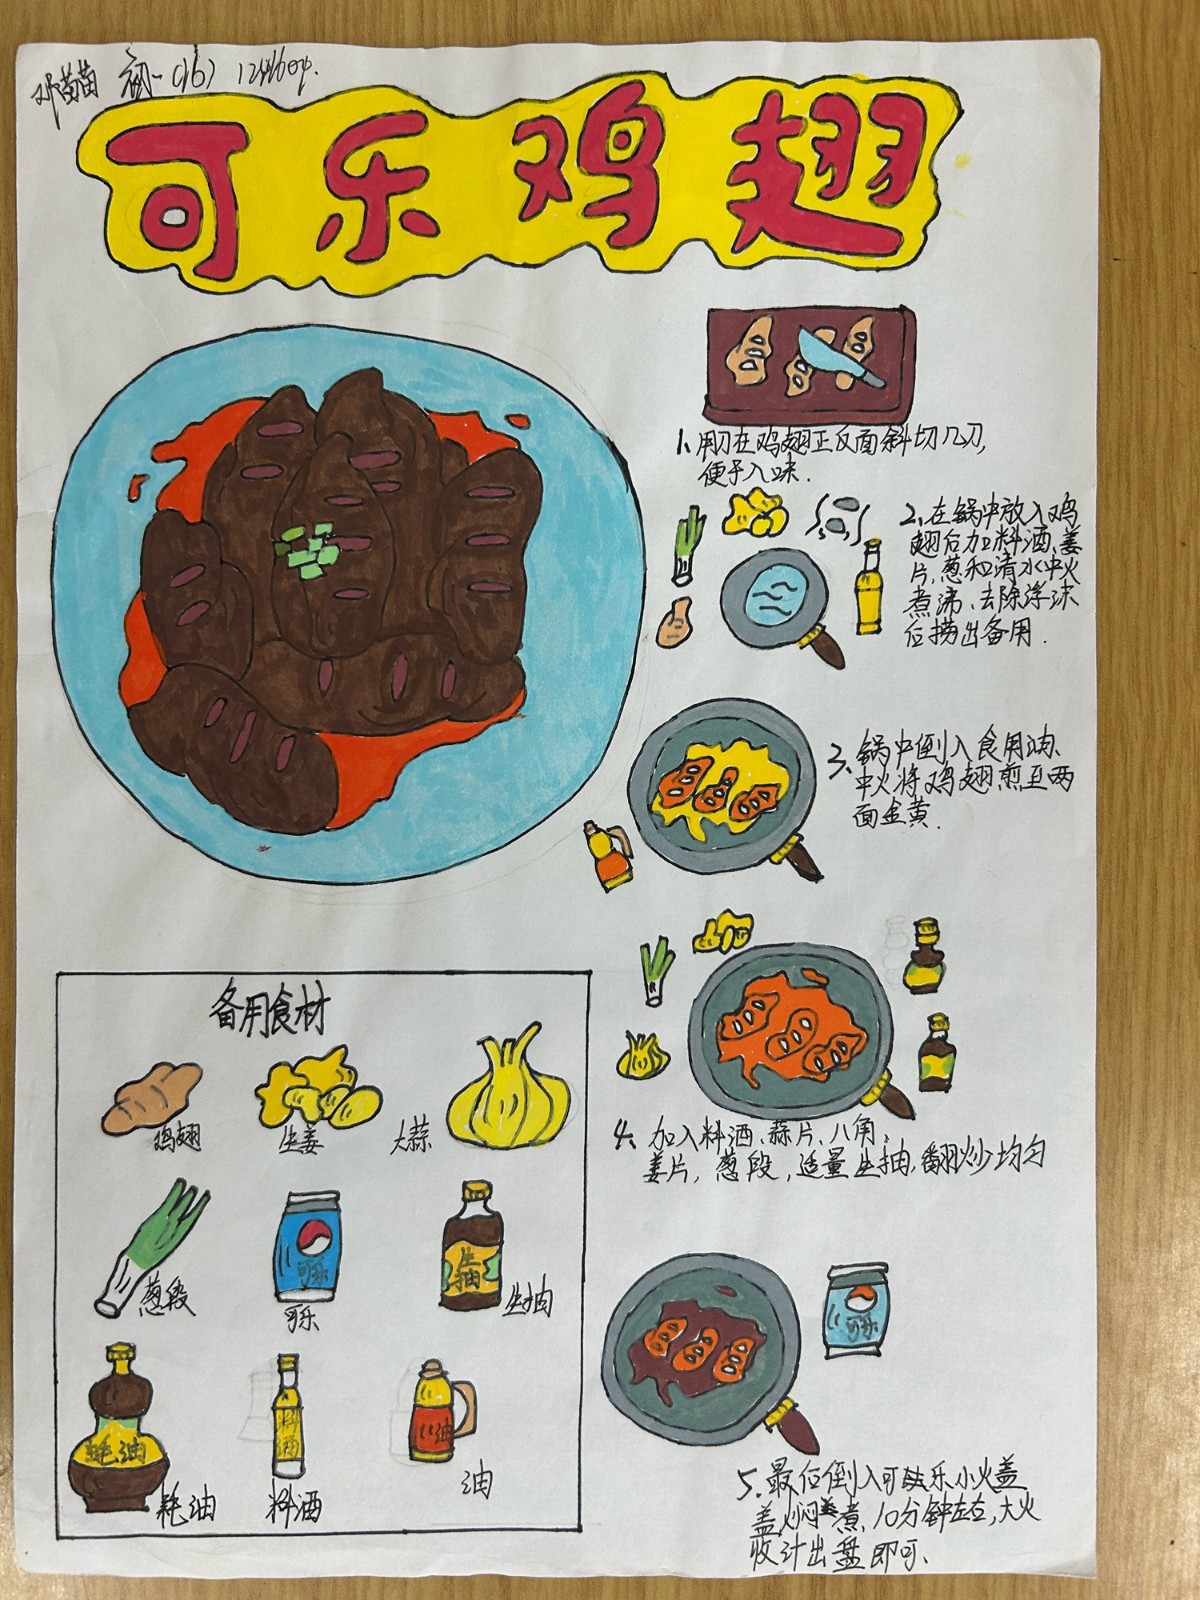 邓苗苗 初一(16) 12月
可乐鸡翅
1、用刀在鸡翅正反面斜切几刀,
便于入味.
2、在锅中放入鸡
翅后加料酒、姜
片,葱和清水中火
煮沸、去除浮沫
后捞出备用.
3、锅中倒入食用油、
中火将鸡翅煎至两
面金黄.
4、加入料酒、蒜片、八角,
姜片,葱段,适量生抽,翻炒均匀
可乐
5.最后倒入可乐小火盖
盖焖煮,10分钟左右,大火
收汁出盘即可、
备用食材
鸡翅
生姜
大蒜
葱段
可乐
可乐
生抽
生抽
蚝油
耗油
料酒
料酒
油
油